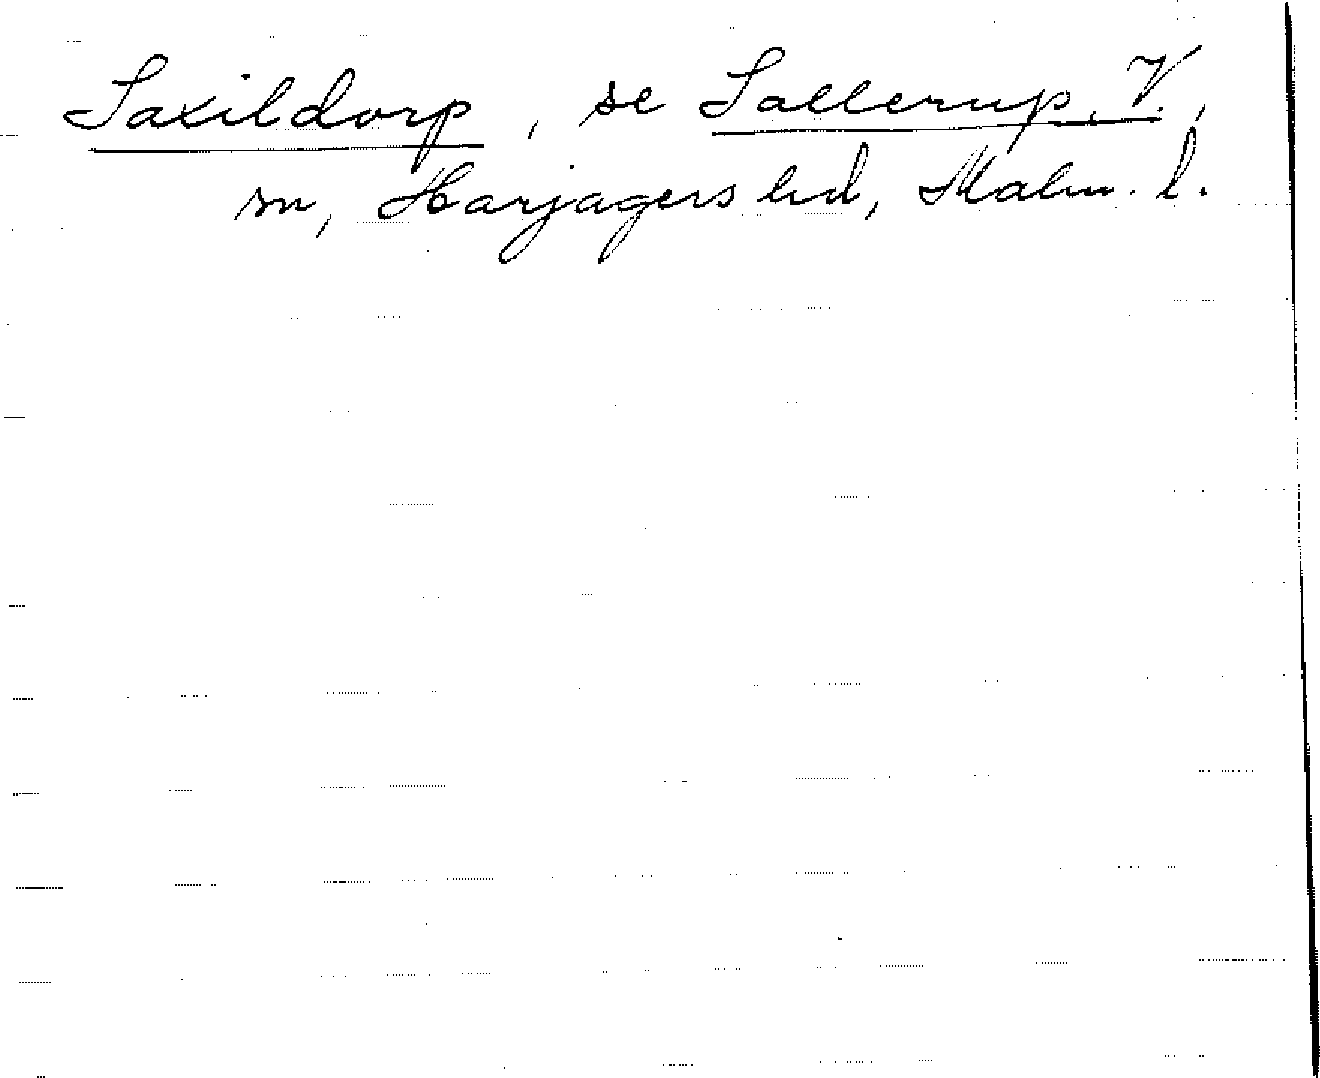 Saxildorp, se Sallerup, V.,
sn, Harjagers hd, Malm. l.